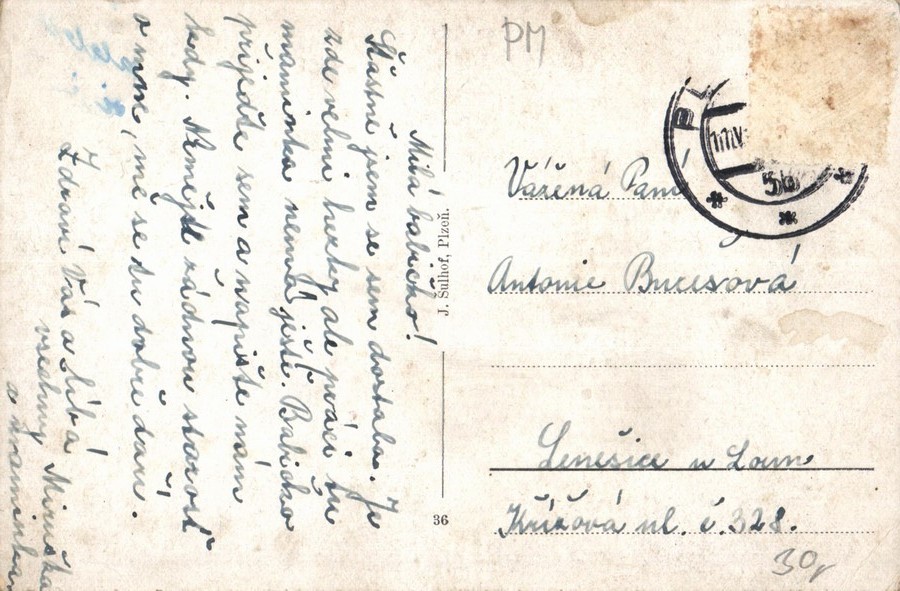 Milá babičko!
Šťastně jsem se sem dostala. Je
zde velmi hezky ale práci tu
maminka nemá ještě. Babičko
přijeďte sem a napište nám
kdy. Nemějte žádnou starost
o mne, mě se tu dobře daří.
Zdraví Vás a líbá Mimiška
všechny
a maminka.
J. Šulhof, Plzeň.
36
PM
PL
11.IV.
Vážená Paní
Antonie
Lenešice u Loun
Křížová ul. č. 328.
30,-